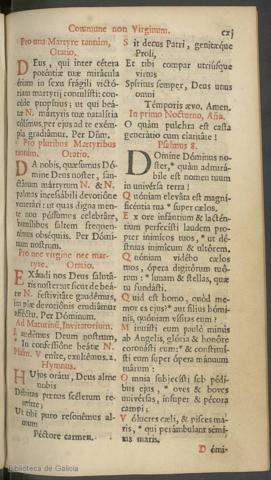 Commune non Virginum. cxj
Pro una Martyre tantùm,
Oratio.
DEus, qui inter cétera
poténtiæ tuæ mirácula
étiam in sexu frágili victó-
riam martýrii contulísti: con-
céde propítius; ut qui beá-
tæ N. mártyris tuæ natalítia
cólimus, per ejus ad te exém-
pla gradiámur. Per Dñm.
Pro pluribus Martyribus
tantùm. Oratio.
DA nobis, quæsumus Dó-
mine Deus noster, san-
ctárum mártyrum N. & N.
palmas incessábili devotióne
venerári: ut quas digna men-
te non póssumus celebráre,
humílibus saltem frequen-
témus obséquiis. Per Dómi-
num nostrum.
Pro nec virgine nec mar-
tyre. Oratio.
EXáudi nos Deus salutá-
ris noster: ut sicut de beá-
tæ N. festivitáte gaudémus,
ita piæ devotiónis erudiámur
afféctu. Per Dóminum.
Ad Matutinũ, Invitatorium.
Laudémus Deum nostrum,
* In confessióne beátæ N.
Psalm. Veníte, exultémus. 2.
Hymnus.
HUjus orátu, Deus alme
nobis
Débitas pœnas scélerum re-
mítte;
Ut tibi puro resonémus al-
mum
Péctore carmen.
Sit decus Patri, genitæque
Proli,
Et tibi compar utriúsque
virtus
Spíritus semper, Deus unus
omni
Témporis ævo. Amen.
In primo Nocturno, Aña.
O quàm pulchra est casta
generátio cum claritáte!
Psalmus 8.
DOmine Dóminus no-
ster,* quàm admirá-
bile est nomen tuum
in univérsa terra!
Quóniam eleváta est magni-
ficéntia tua * super cælos.
Ex ore infántium & lactén-
tium perfecísti laudem pro-
pter inimícos tuos, * ut dé-
struas inimícum & ultórem.
Quóniam vidébo cælos
tuos, ópera digitórum tuó-
rum: * lunam & stellas, quæ
tu fundásti.
Quid est homo, quòd me-
mor es ejus? * aut fílius hómi-
nis, quóniam vísitas eum?
Minuísti eum paulò minùs
ab Angelis, glória & honóre
coronásti eum: * & constituí-
sti eum super ópera mánuum
tuárum:
Omnia subjecísti sub pédi-
bus ejus, * oves & boves
univérsas, ínsuper & pécora
campi;
Vólucres cæli, & pisces ma-
ris, * qui perámbulant sémi-
tas maris.
Dómi-
Biblioteca de Galicia